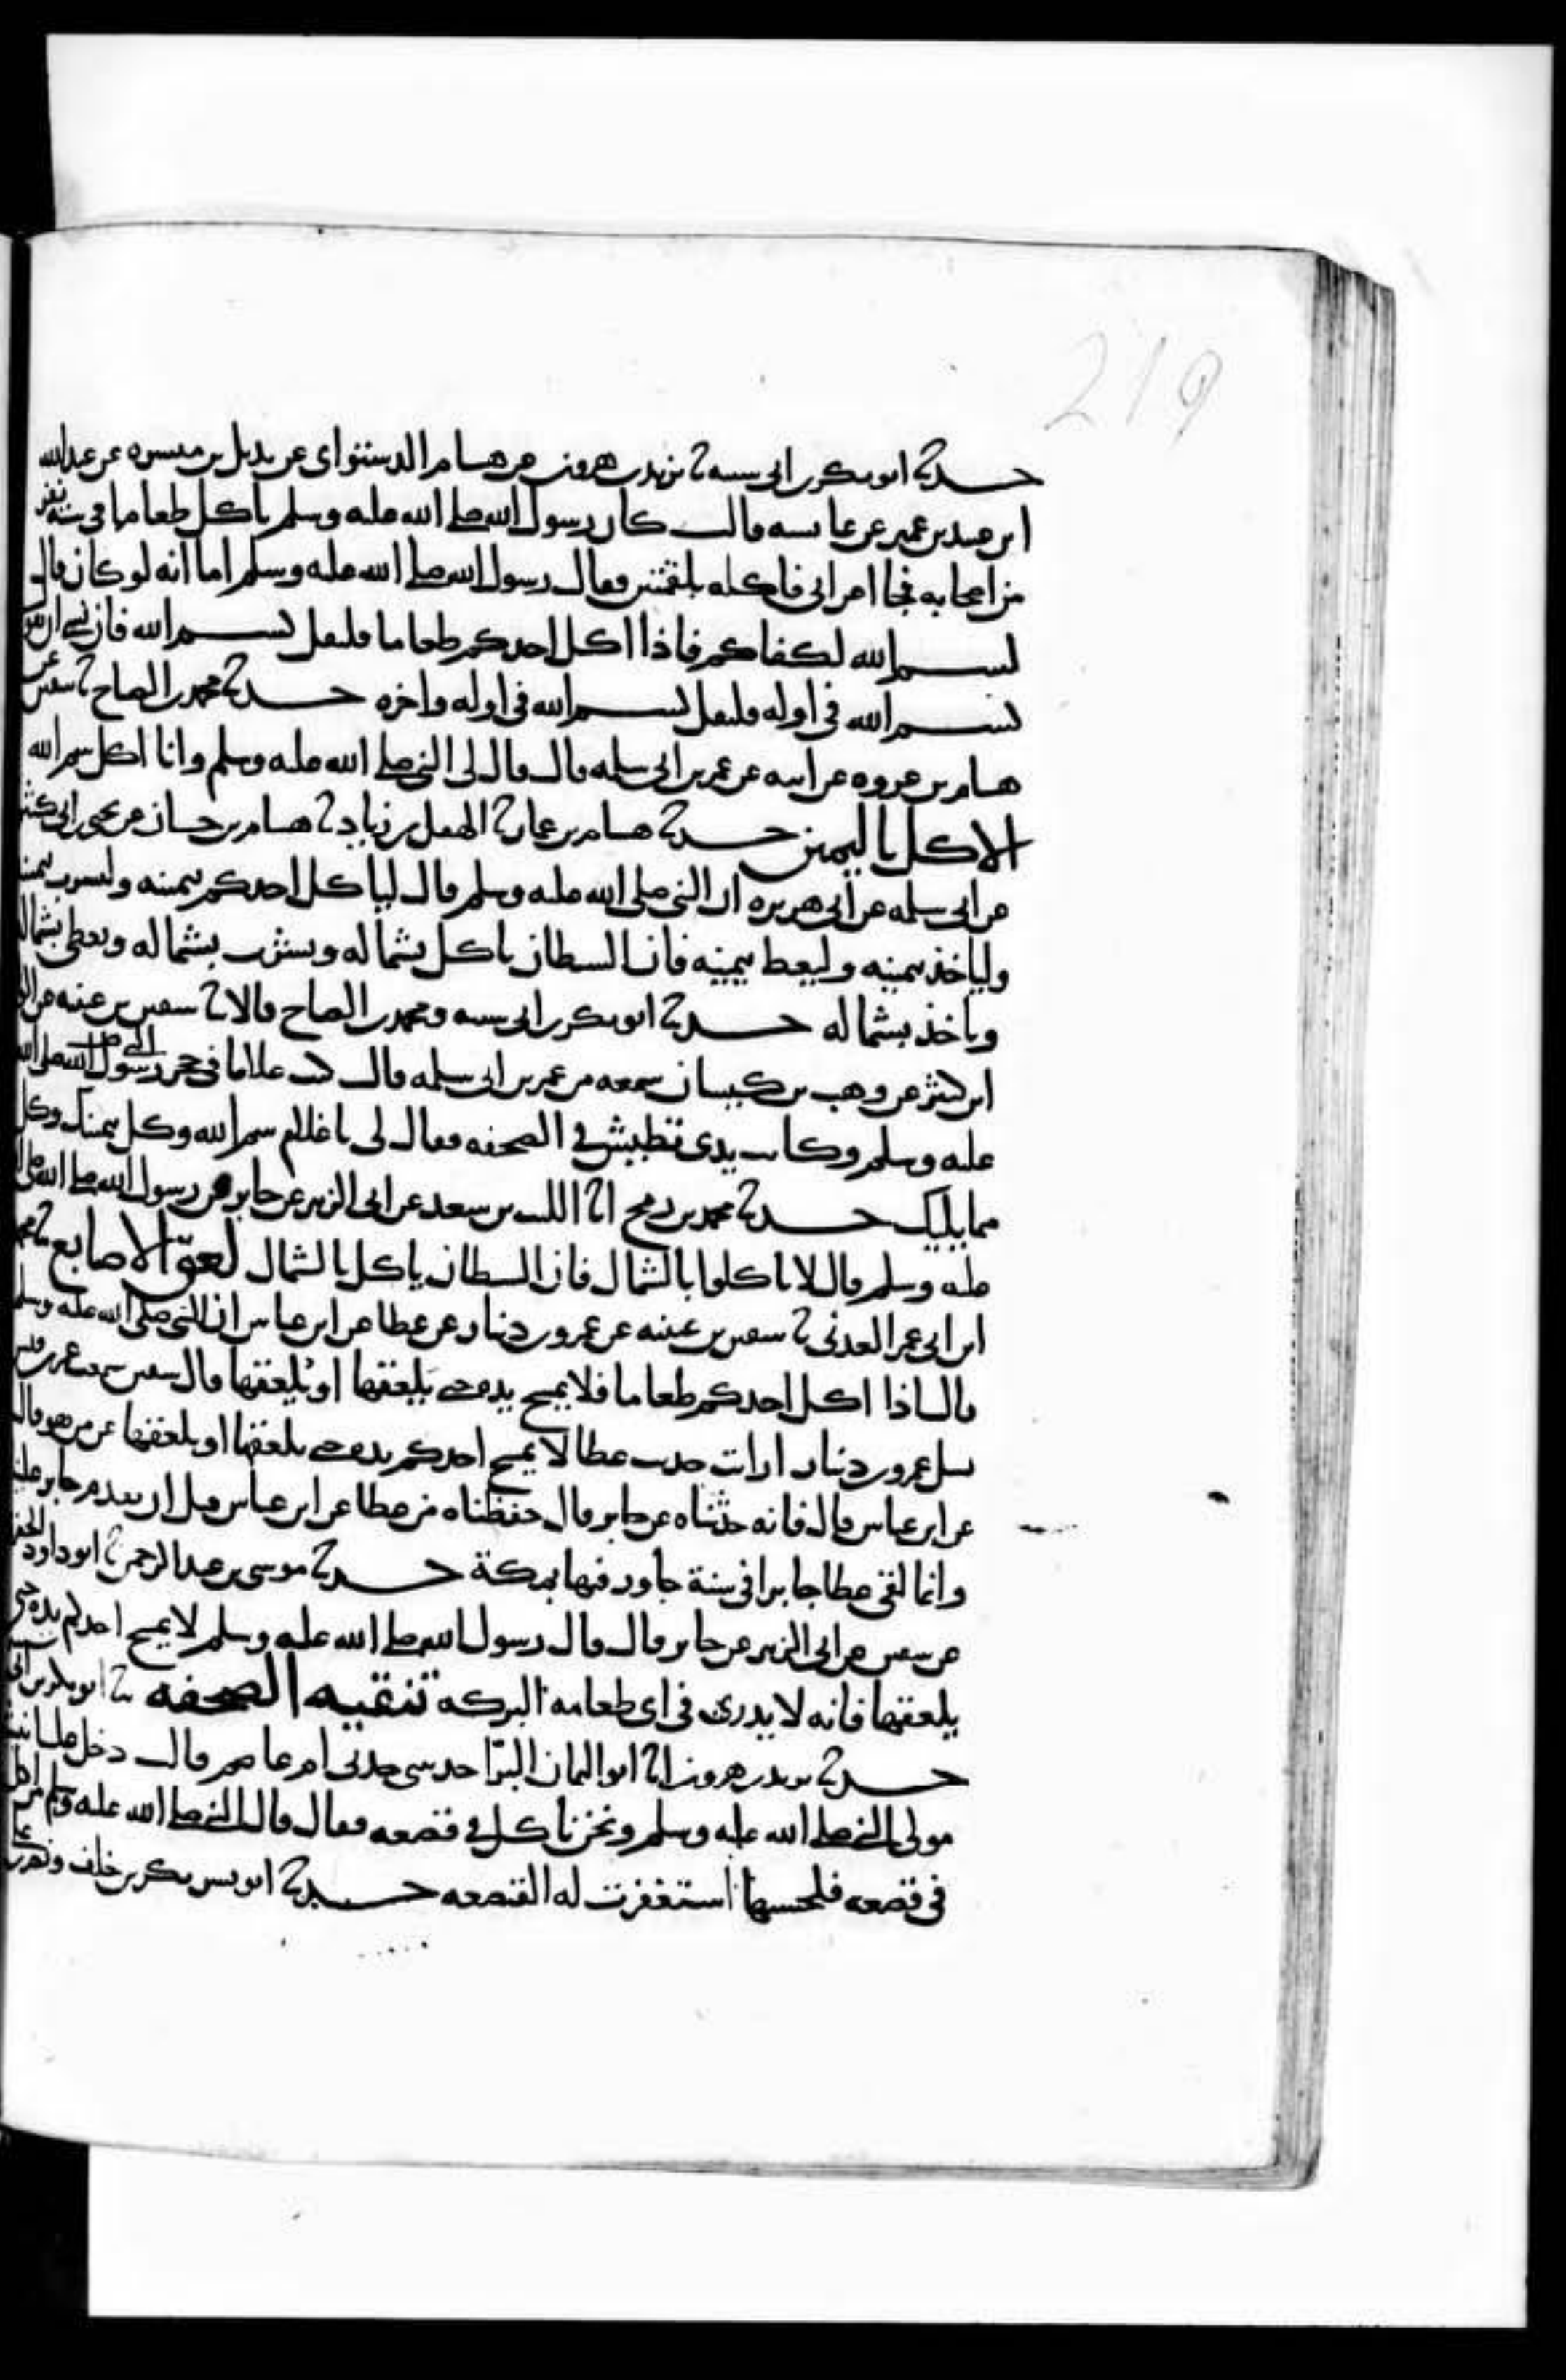 219
حدثنا ابو بكر بن ابي شيبه ثنا يزيد بن هرون عن هشام الدستواي عن بديل بن ميسره عن عبد الله
ابن عبيد بن عمير عن عايشه قالت كان رسول الله صلى الله عليه وسلم ياكل طعاما في ستة نفر
من اصحابه فجا اعرابي فاكله بلقمتين فقال رسول الله صلى الله عليه وسلم اما انه لو كان قال
بسم الله لكفاكم فاذا اكل احدكم طعاما فليقل بسم الله فان نسي ان يقول
بسم الله في اوله فليقل بسم الله في اوله واخره حدثنا محمد بن الصباح ثنا سفين عن
هشام بن عروه عن ابيه عن عمر بن ابي سلمه قال قال لي النبي صلى الله عليه وسلم وانا اكل سم الله
الاكل باليمين حدثنا هشام بن عمار ثنا الهقل بن زياد ثنا هشام بن حسان عن يحيى بن ابي كثير
عن ابي سلمه عن ابي هريره ان النبي صلى الله عليه وسلم قال لياكل احدكم بيمينه وليشرب بيمينه
ولياخذ بيمينه وليعط بيمينه فان الشيطان ياكل بشماله ويشرب بشماله ويعطي بشماله
وياخذ بشماله حدثنا ابو بكر بن ابي شيبه ومحمد بن الصباح قالا ثنا سفين بن عيينه عن الوليد
ابن كثير عن وهب بن كيسان سمعه من عمر بن ابي سلمه قال كنت غلاما في حجر رسول الله صلى الله
عليه وسلم وكانت يدي تطيش في الصحفه فقال لي يا غلام سم الله وكل بيمينك وكل
مما يليك حدثنا محمد بن رمح انا الليث بن سعد عن ابي الزبير عن جابر عن رسول الله صلى الله
عليه وسلم قال لا تاكلوا بالشمال فان الشيطان ياكل بالشمال لعق الاصابع ثنا محمد
ابن ابي عمر العدني ثنا سفين بن عيينه عن عمرو بن دينار عن عطا عن ابن عباس ان النبي صلى الله عليه وسلم
قال اذا اكل احدكم طعاما فلا يمسح يده حتى يَلعقها او يُلعقها قال سفين سمعت عمر بن قيس
يسل عمرو بن دينار ارايت حديث عطا لا يمسح احدكم يده حتى يلعقها او يلعقها عن من هو قال
عن ابن عباس قال فانه حدثناه عن جابر قال حفظناه من عطا عن ابن عباس قبل ان يقدم جابر علينا
وانما لقي عطا جابرا في سنة جاور فيها بمكة حدثنا موسى بن عبد الرحمن ثنا ابو داود الحفري
عن سفين عن ابي الزبير عن جابر قال قال رسول الله صلى الله عليه وسلم لا يمسح احدكم يده حتى
يلعقها فانه لا يدري في اي طعامه البركه تنقيه الصحفه ثنا ابو بكر بن ابي
حدثنا يزيد بن هرون انا ابو اليمان البرّا حدثتني جدتي ام عاصم قالت دخل علينا نبيشة
مولى النبي صلى الله عليه وسلم ونحن ناكل في قصعه فقال قال النبي صلى الله عليه وسلم من اكل
في قصعه فلحسها استغفرت له القصعه حدثنا ابو بشر بكر بن خلف ونصر بن علي